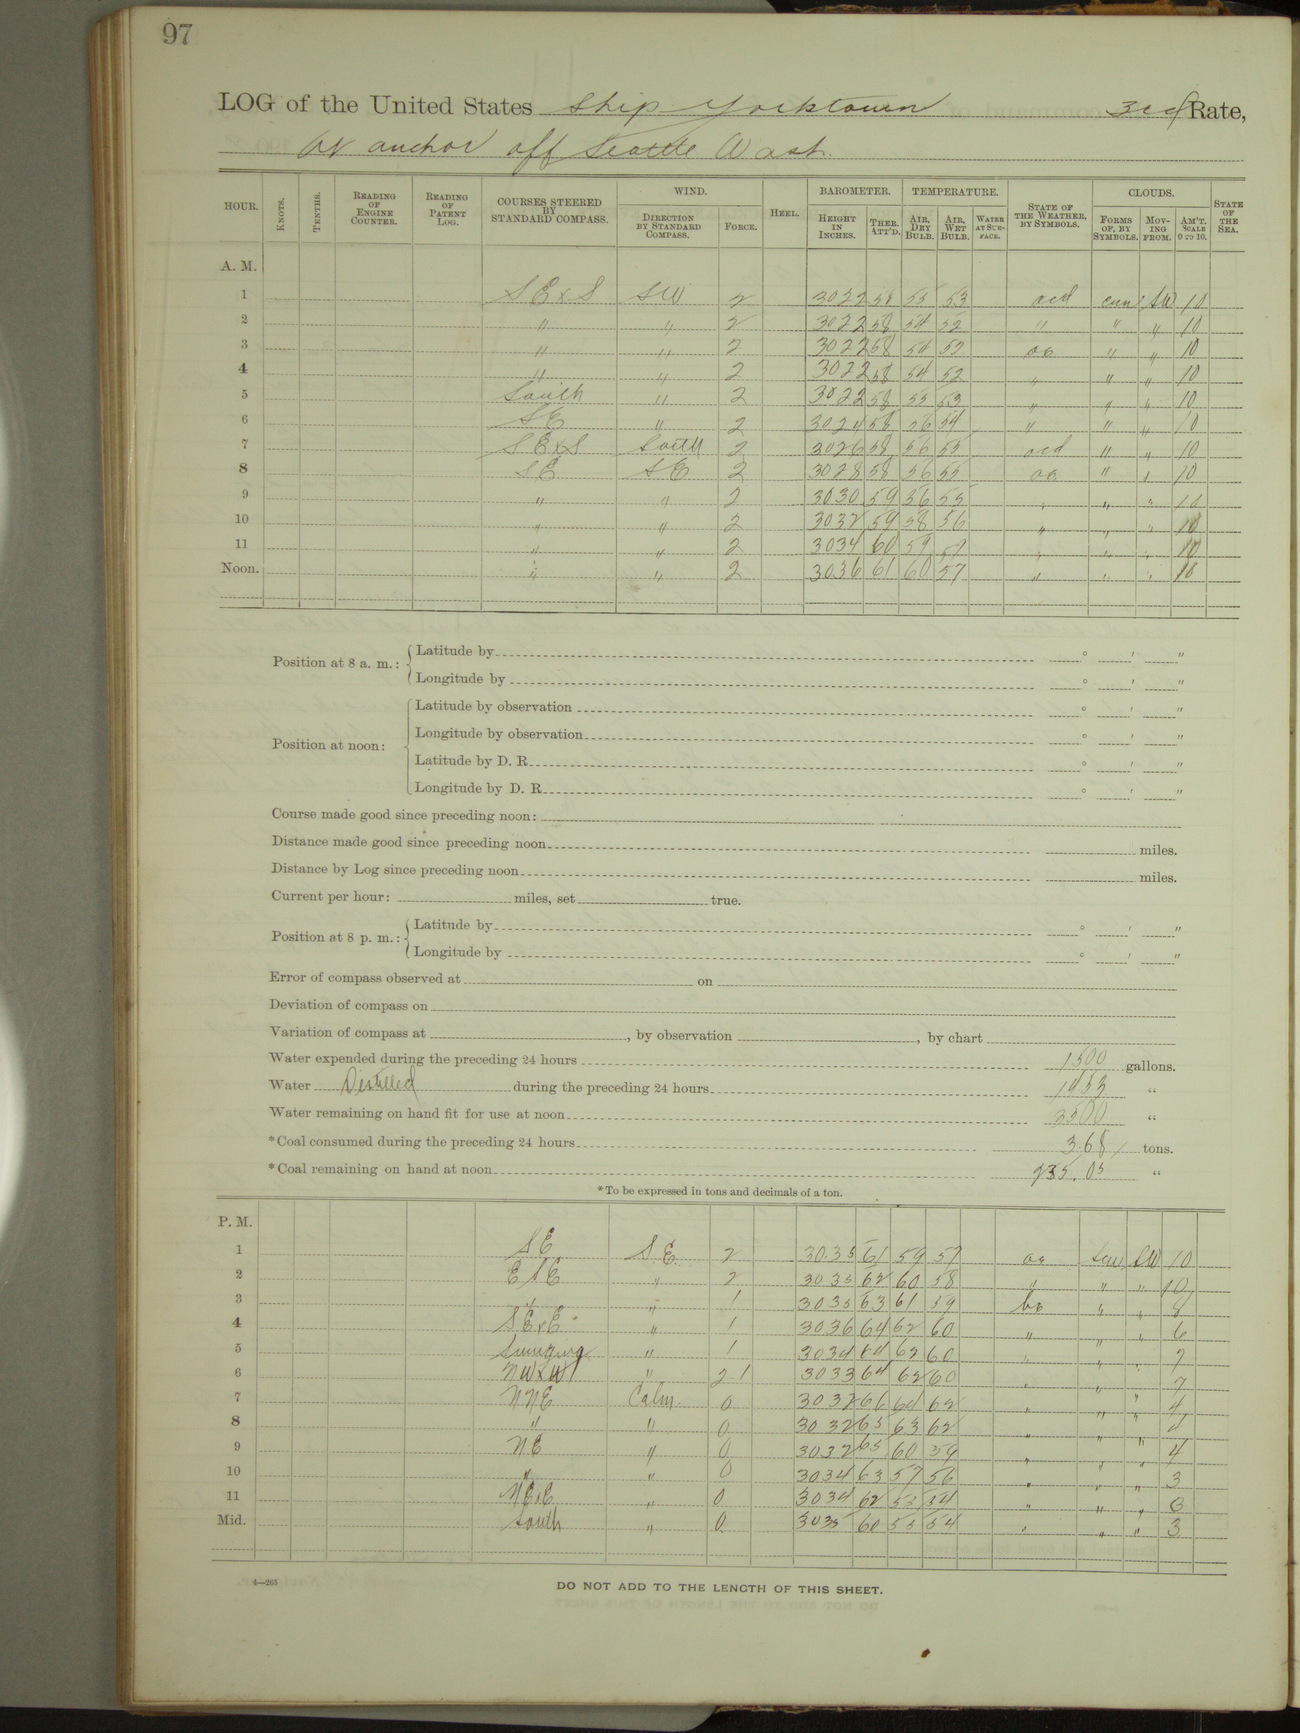 97
LOG of the United States Ship Yorktown 3rd Rate,
At anchor off Seattle Wash.
HOUR. KNOTS. TENTHS. READING OF ENGINE COUNTER. READING OF PATENT LOG. COURSES STEERED BY STANDARD COMPASS. WIND. DIRECTION BY STANDARD COMPASS. FORCE. HEEL. BAROMETER. HEIGHT IN INCHES. THER. ATT'D. TEMPERATURE. AIR, DRY BULB. AIR, WET BULB. WATER AT SURFACE. STATE OF THE WEATHER, BY SYMBOLS. CLOUDS. FORMS OF, BY SYMBOLS. MOVING FROM. AM'T. SCALE 0 TO 10. STATE OF THE SEA.
A. M.
1 SExS SW 2 3022 58 55 53 ocd cum SW 10
2 " " 2 3022 58 54 52 " " " 10
3 " " 2 3022 58 54 52 oc " " 10
4 " " 2 3022 58 54 52 " " " 10
5 South " 2 3022 58 55 53 " " " 10
6 SE " 2 3024 58 56 54 " " " 10
7 SExS South 2 3026 58 56 55 ocd " " 10
8 SE SE 2 3028 58 56 55 oc " " 10
9 " " 2 3030 59 56 55 " " " 10
10 " " 2 3032 59 58 56 " " " 10
11 " " 2 3034 60 59 57 " " " 10
Noon. " " 2 3036 61 60 57 " " " 10
Position at 8 a. m.: Latitude by ° ' "
Longitude by ° ' "
Position at noon: Latitude by observation ° ' "
Longitude by observation ° ' "
Latitude by D. R. ° ' "
Longitude by D. R. ° ' "
Course made good since preceding noon:
Distance made good since preceding noon miles.
Distance by Log since preceding noon miles.
Current per hour: miles, set true.
Position at 8 p. m.: Latitude by ° ' "
Longitude by ° ' "
Error of compass observed at on
Deviation of compass on
Variation of compass at , by observation , by chart
Water expended during the preceding 24 hours 1500 gallons.
Water Distilled during the preceding 24 hours 1453 "
Water remaining on hand fit for use at noon 3300 "
*Coal consumed during the preceding 24 hours 3.68 tons.
*Coal remaining on hand at noon 235.05 "
*To be expressed in tons and decimals of a ton.
P. M.
1 SE SE 2 3035 61 59 57 oc SW 10
2 ESE " 2 3035 62 60 58 " " " 10
3 " " 1 3035 63 61 59 bc " " 8
4 SExE " 1 3036 64 62 60 " " " 6
5 Swinging " 1 3034 64 62 60 " " " 7
6 NWxW " 2 1 3033 64 62 60 " " " 7
7 NNE Calm 0 3032 66 64 62 " " " 4
8 " " 0 3032 65 63 62 " " " 4
9 NE " 0 3032 65 60 59 " " " 4
10 " " 0 3034 63 57 56 " " " 3
11 NExE " 0 3034 62 55 54 " " " 3
Mid. South " 0 3035 60 55 54 " " " 3
4—265
DO NOT ADD TO THE LENGTH OF THIS SHEET.